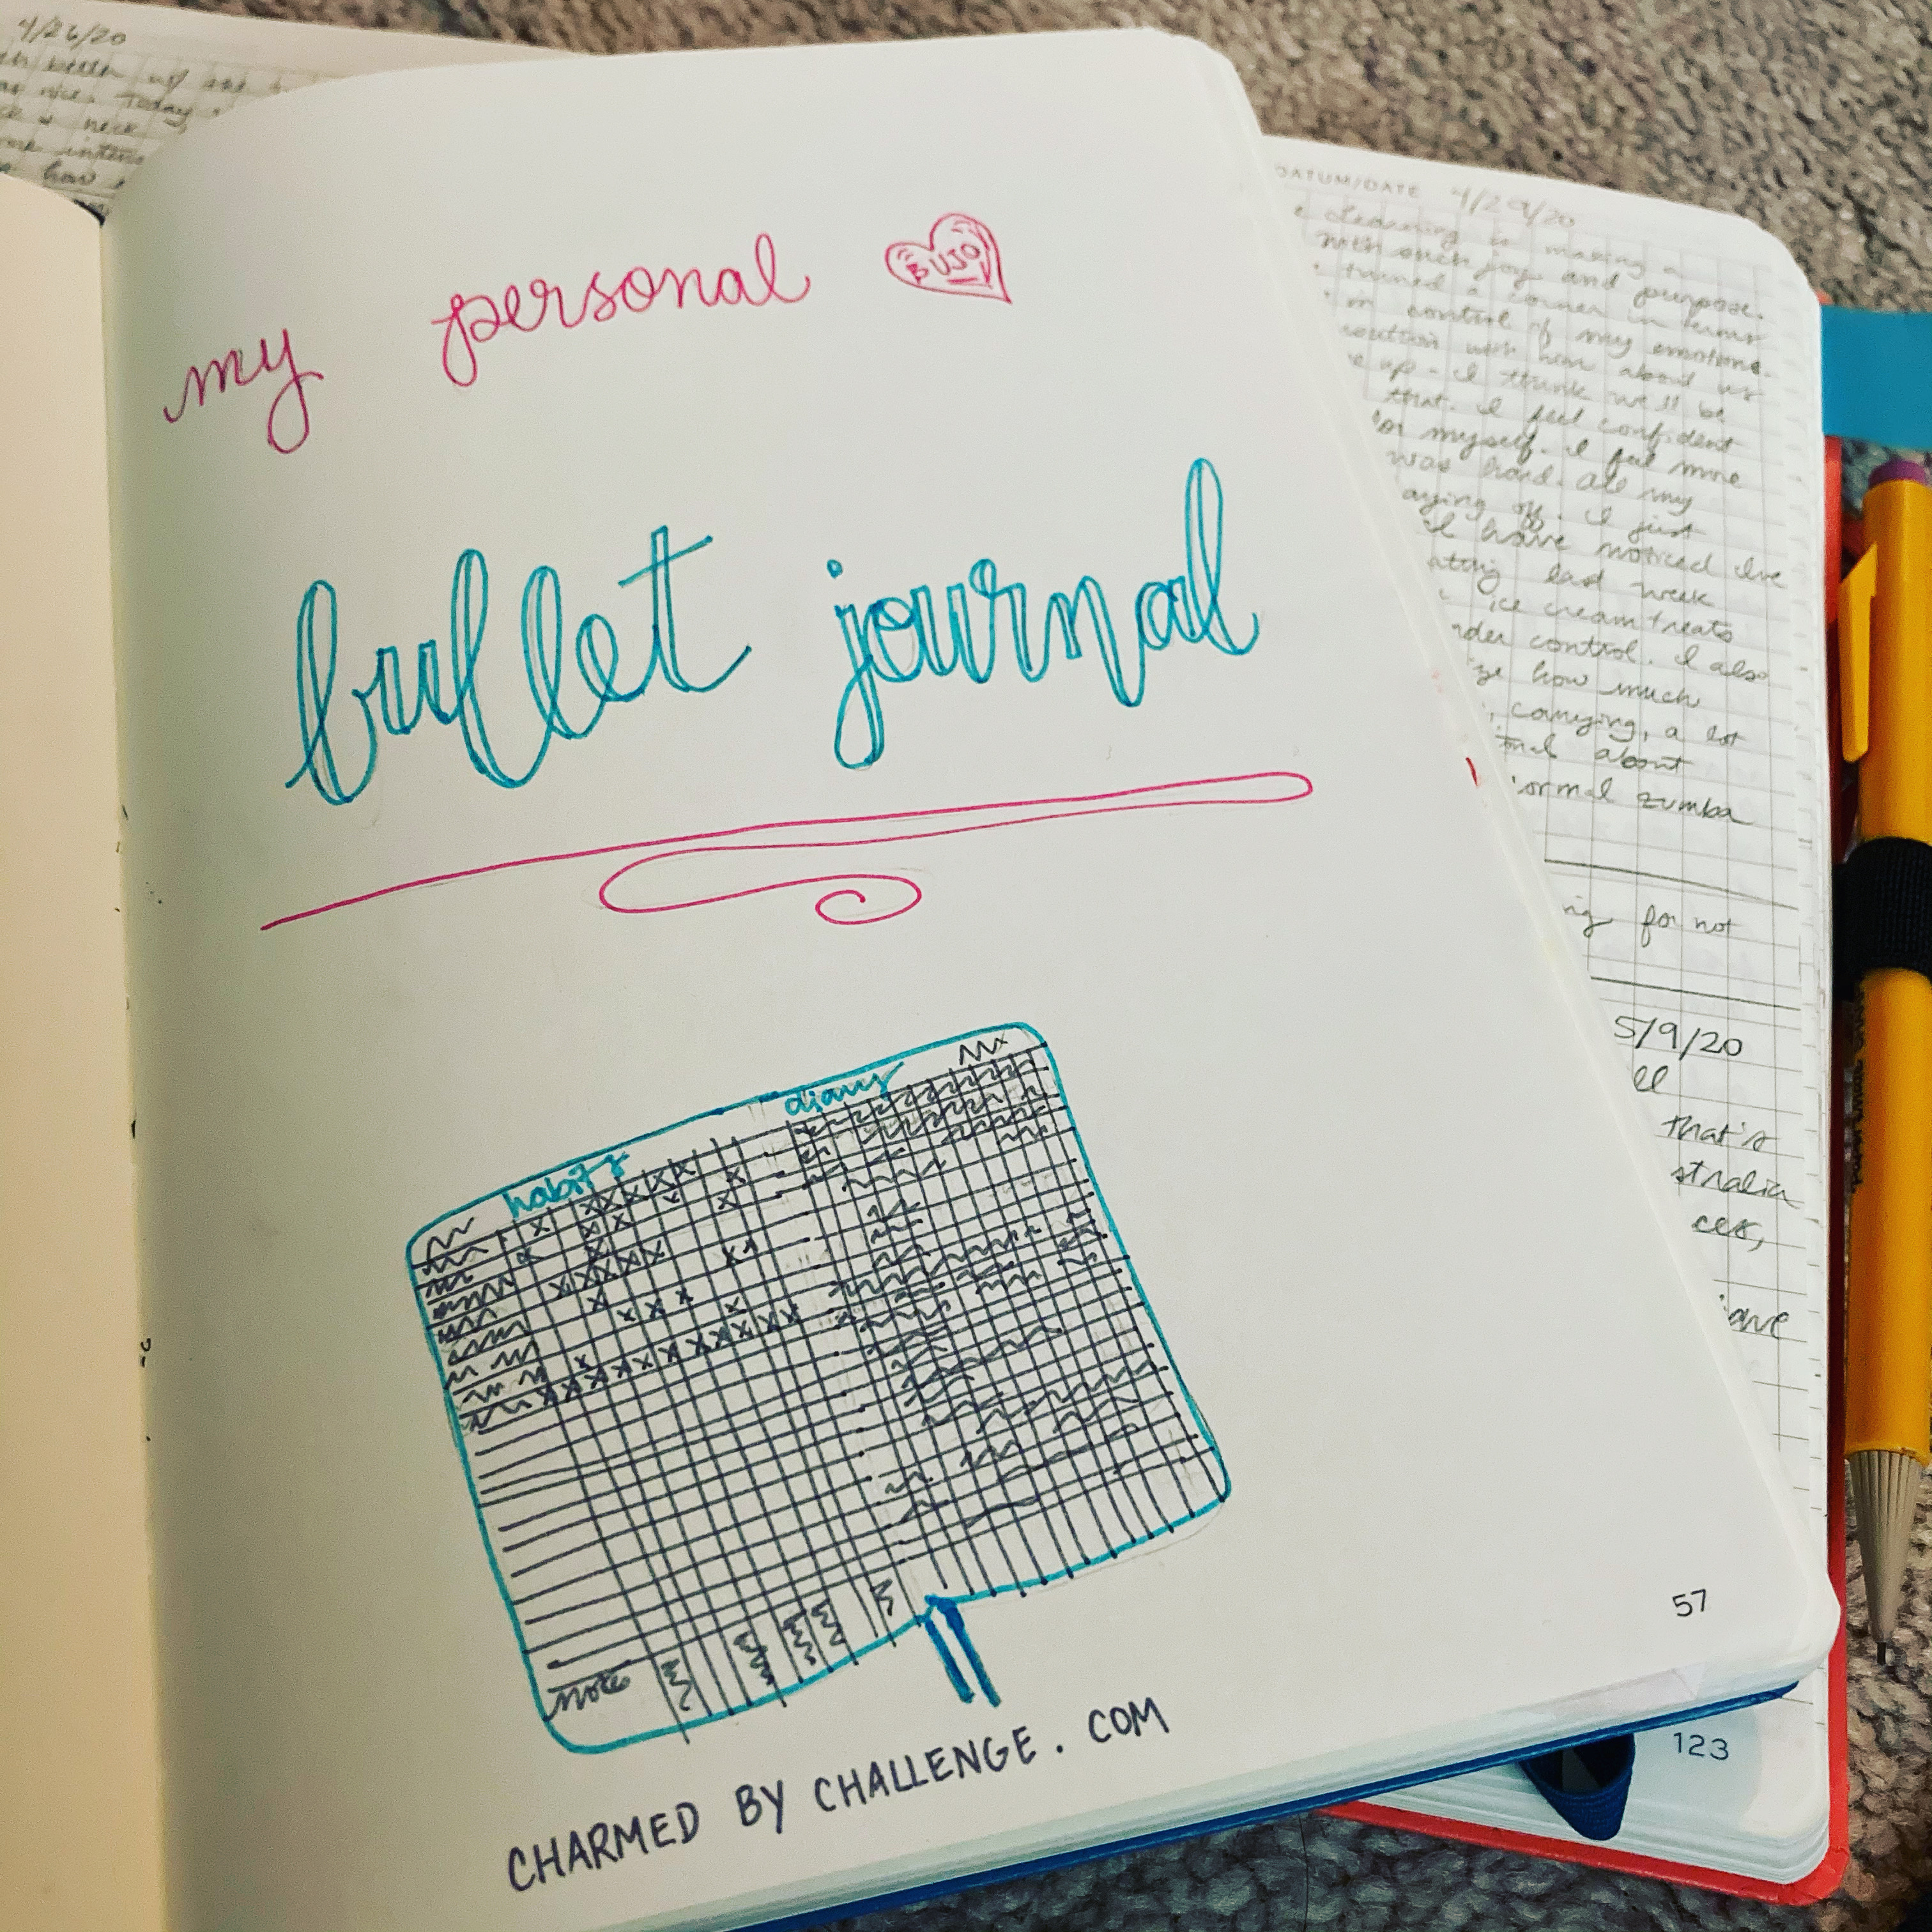 4/26/20
nice. Today
neck
how
my personal
BUJO
bullet journal
habits
diary
note
CHARMED BY CHALLENGE.COM
57
DATUM/DATE 4/29/20
Learning is making a
with such joy and purpose.
turned a corner in terms
in control of my emotions.
with him about us
up - I think we'll be
that. I feel confident
for myself. I feel more
was hard. All my
aying off. I just
I have noticed I've
ating last week
ice cream treats
nder control. I also
ize how much
carrying, a lot
about
ormal zumba
ng for not
5/9/20
ll
that's
stralia
ces,
ave
123